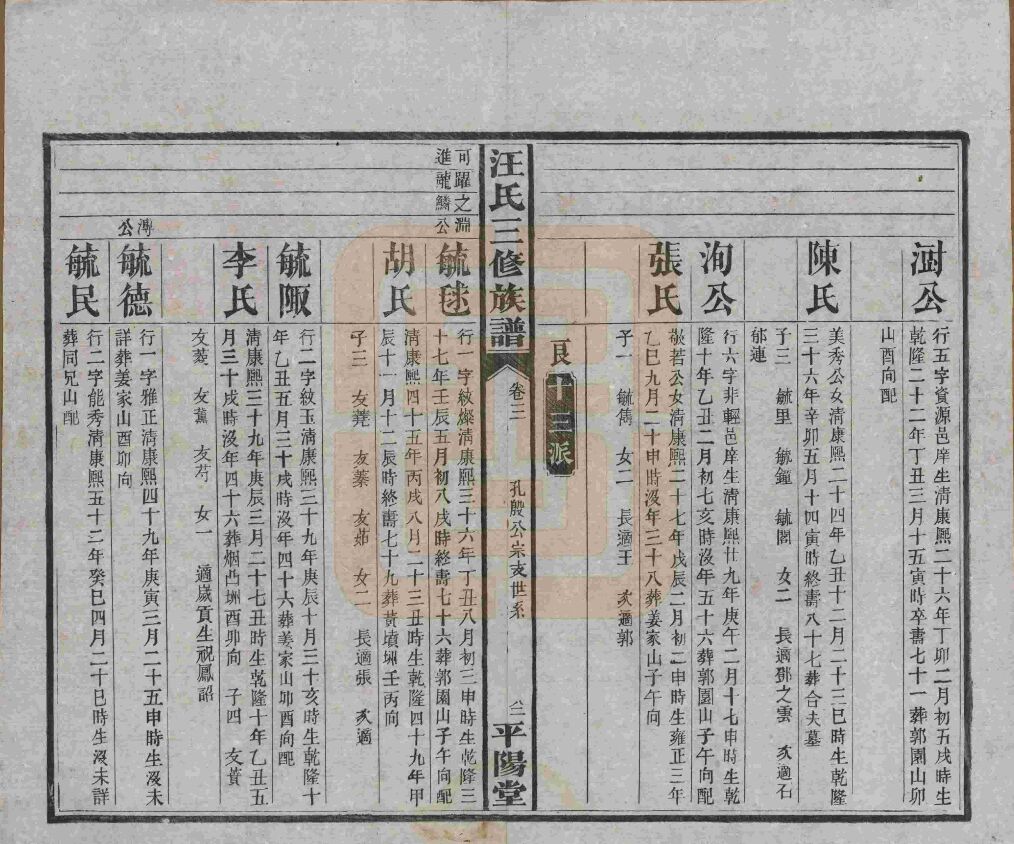 澍公
行五字資源邑庠生清康熙二十六年丁卯二月初五戌時生
乾隆二十二年丁丑三月十五寅時卒壽七十一葬郭園山卯
山酉向配
陳氏
美秀公女清康熙二十四年乙丑十二月二十三巳時生乾隆
三十六年辛卯五月十四寅時終壽八十七葬合夫墓
子三 毓里 毓鐘 毓閣 女二 長適鄧之雲 次適石
郁連
洵公
行六字非輕邑庠生清康熙廿九年庚午二月十七申時生乾
隆十年乙丑二月初七亥時沒年五十六葬郭園山子午向配
張氏
敬若公女清康熙二十七年戊辰二月初二申時生雍正三年
乙巳九月二十申時沒年三十八葬姜家山子午向
子一 毓儁 女二 長適王 次適郭
艮 十三派
汪氏三修族譜 卷三 孔殷公宗支世系 平陽堂
可躍之淵
進龍鱗公
毓毬
行一字紋燦清康熙三十六年丁丑八月初三申時生乾隆三
十七年壬辰五月初八戌時終壽七十六葬郭園山子午向配
胡氏
清康熙四十五年丙戌八月二十三丑時生乾隆四十九年甲
辰十一月十二辰時終壽七十九葬黃墳壩壬丙向
子三 友蕘 友蓁 友茆 女二 長適張 次適
毓陬
行二字紋玉清康熙三十九年庚辰十月三十亥時生乾隆十
年乙丑五月三十戌時沒年四十六葬姜家山卯酉向配
李氏
清康熙三十九年庚辰三月二十七丑時生乾隆十年乙丑五
月三十戌時沒年四十六葬烟凸坳酉卯向 子四 友蕡
友菱 友薰 友芍 女一 適歲貢生祝鳳詔
溥公
毓德
行一字雅正清康熙四十九年庚寅三月二十五申時生沒未
詳葬姜家山酉卯向
毓民
行二字能秀清康熙五十二年癸巳四月二十巳時生沒未詳
葬同兄山配